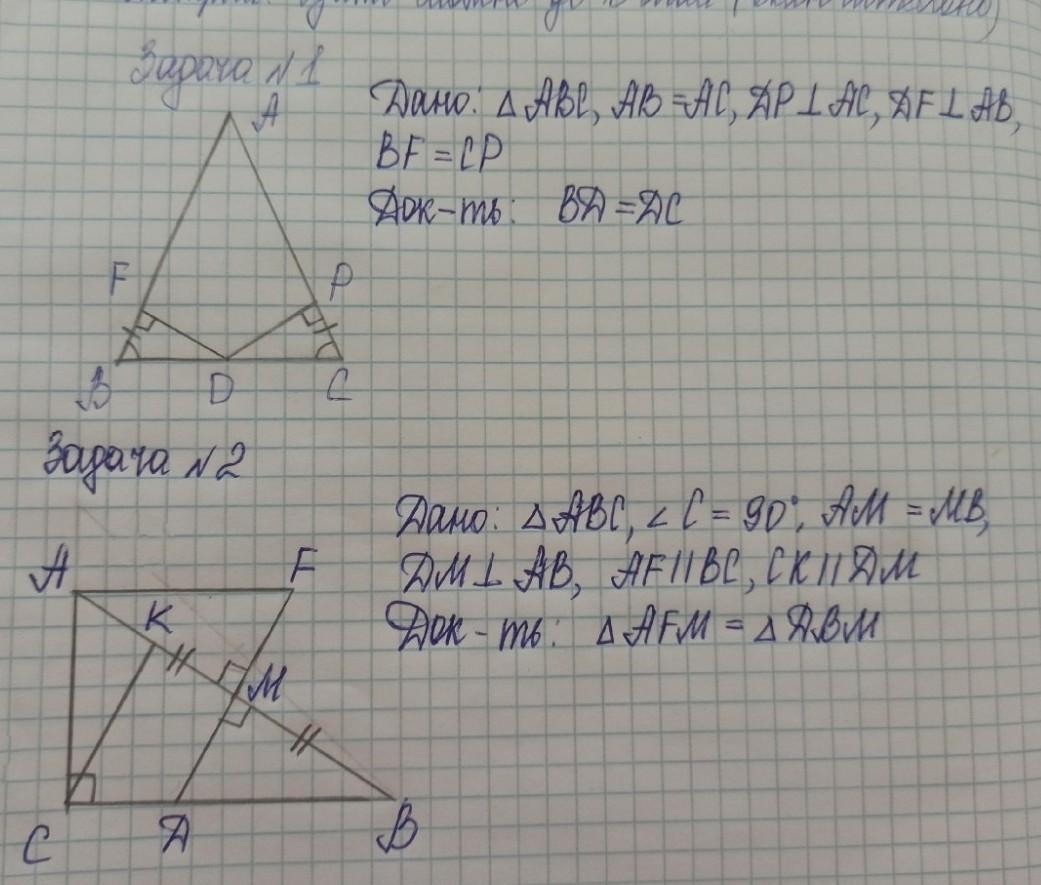 Задача №1
Дано: △ABC, AB = AC, DP ⊥ AC, DF ⊥ AB,
BF = CP
Док-ть: BD = DC
A
F
P
B
D
C
Задача №2
Дано: △ABC, ∠C = 90°, AM = MB,
DM ⊥ AB, AF || BC, CK || DM
Док-ть: △AFM = △DBM
A
F
K
M
C
D
B